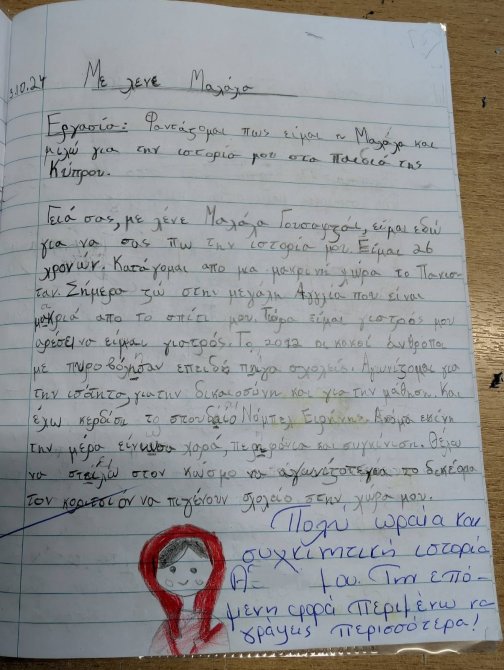 3.10.24
Με λενε Μαλάλα
Εργασία: Φαντάζομαι πως είμαι η Μαλάλα και
μιλώ για την ιστορία μου στα παιδιά της
Κύπρου.
Γειά σας, με λένε Μαλάλα Γουσαφζάι, είμαι εδώ
για να σας πω την ιστορία μου. Είμαι 26
χρονών. Κατάγομαι απο μια μακρινή χώρα το Πακισ-
ταν. Σήμερα ζώ στην μεγάλη Αγγλία που είναι
μακριά απο το σπίτι μου. Τώρα είμαι γιατρός μου
αρέσει να είμαι γιατρός. Το 2012 οι κακοί άνθρωποι
με πυροβόλησαν επειδή πήγα σχολείο. Αγωνίζομαι για
την ισότητα, για την δικαιοσύνη και για την μάθηση. Και
έχω κερδίσει το σπουδαίο Νόμπελ Ειρήνης. Ακόμα εκείνη
την μέρα ένιωσα χαρά, περηφάνια και συγκίνιση. Θέλω
να στείλω στον κώσμο να αγωνίζοτε για το
τον κοριτσιον να πιγένουν σχολείο στην χώρα μου.
Πολύ ωραία και
συγκινητική ιστορία
μου. Την επό-
μενη φορά περιμένω να
γράψεις περισσότερα!